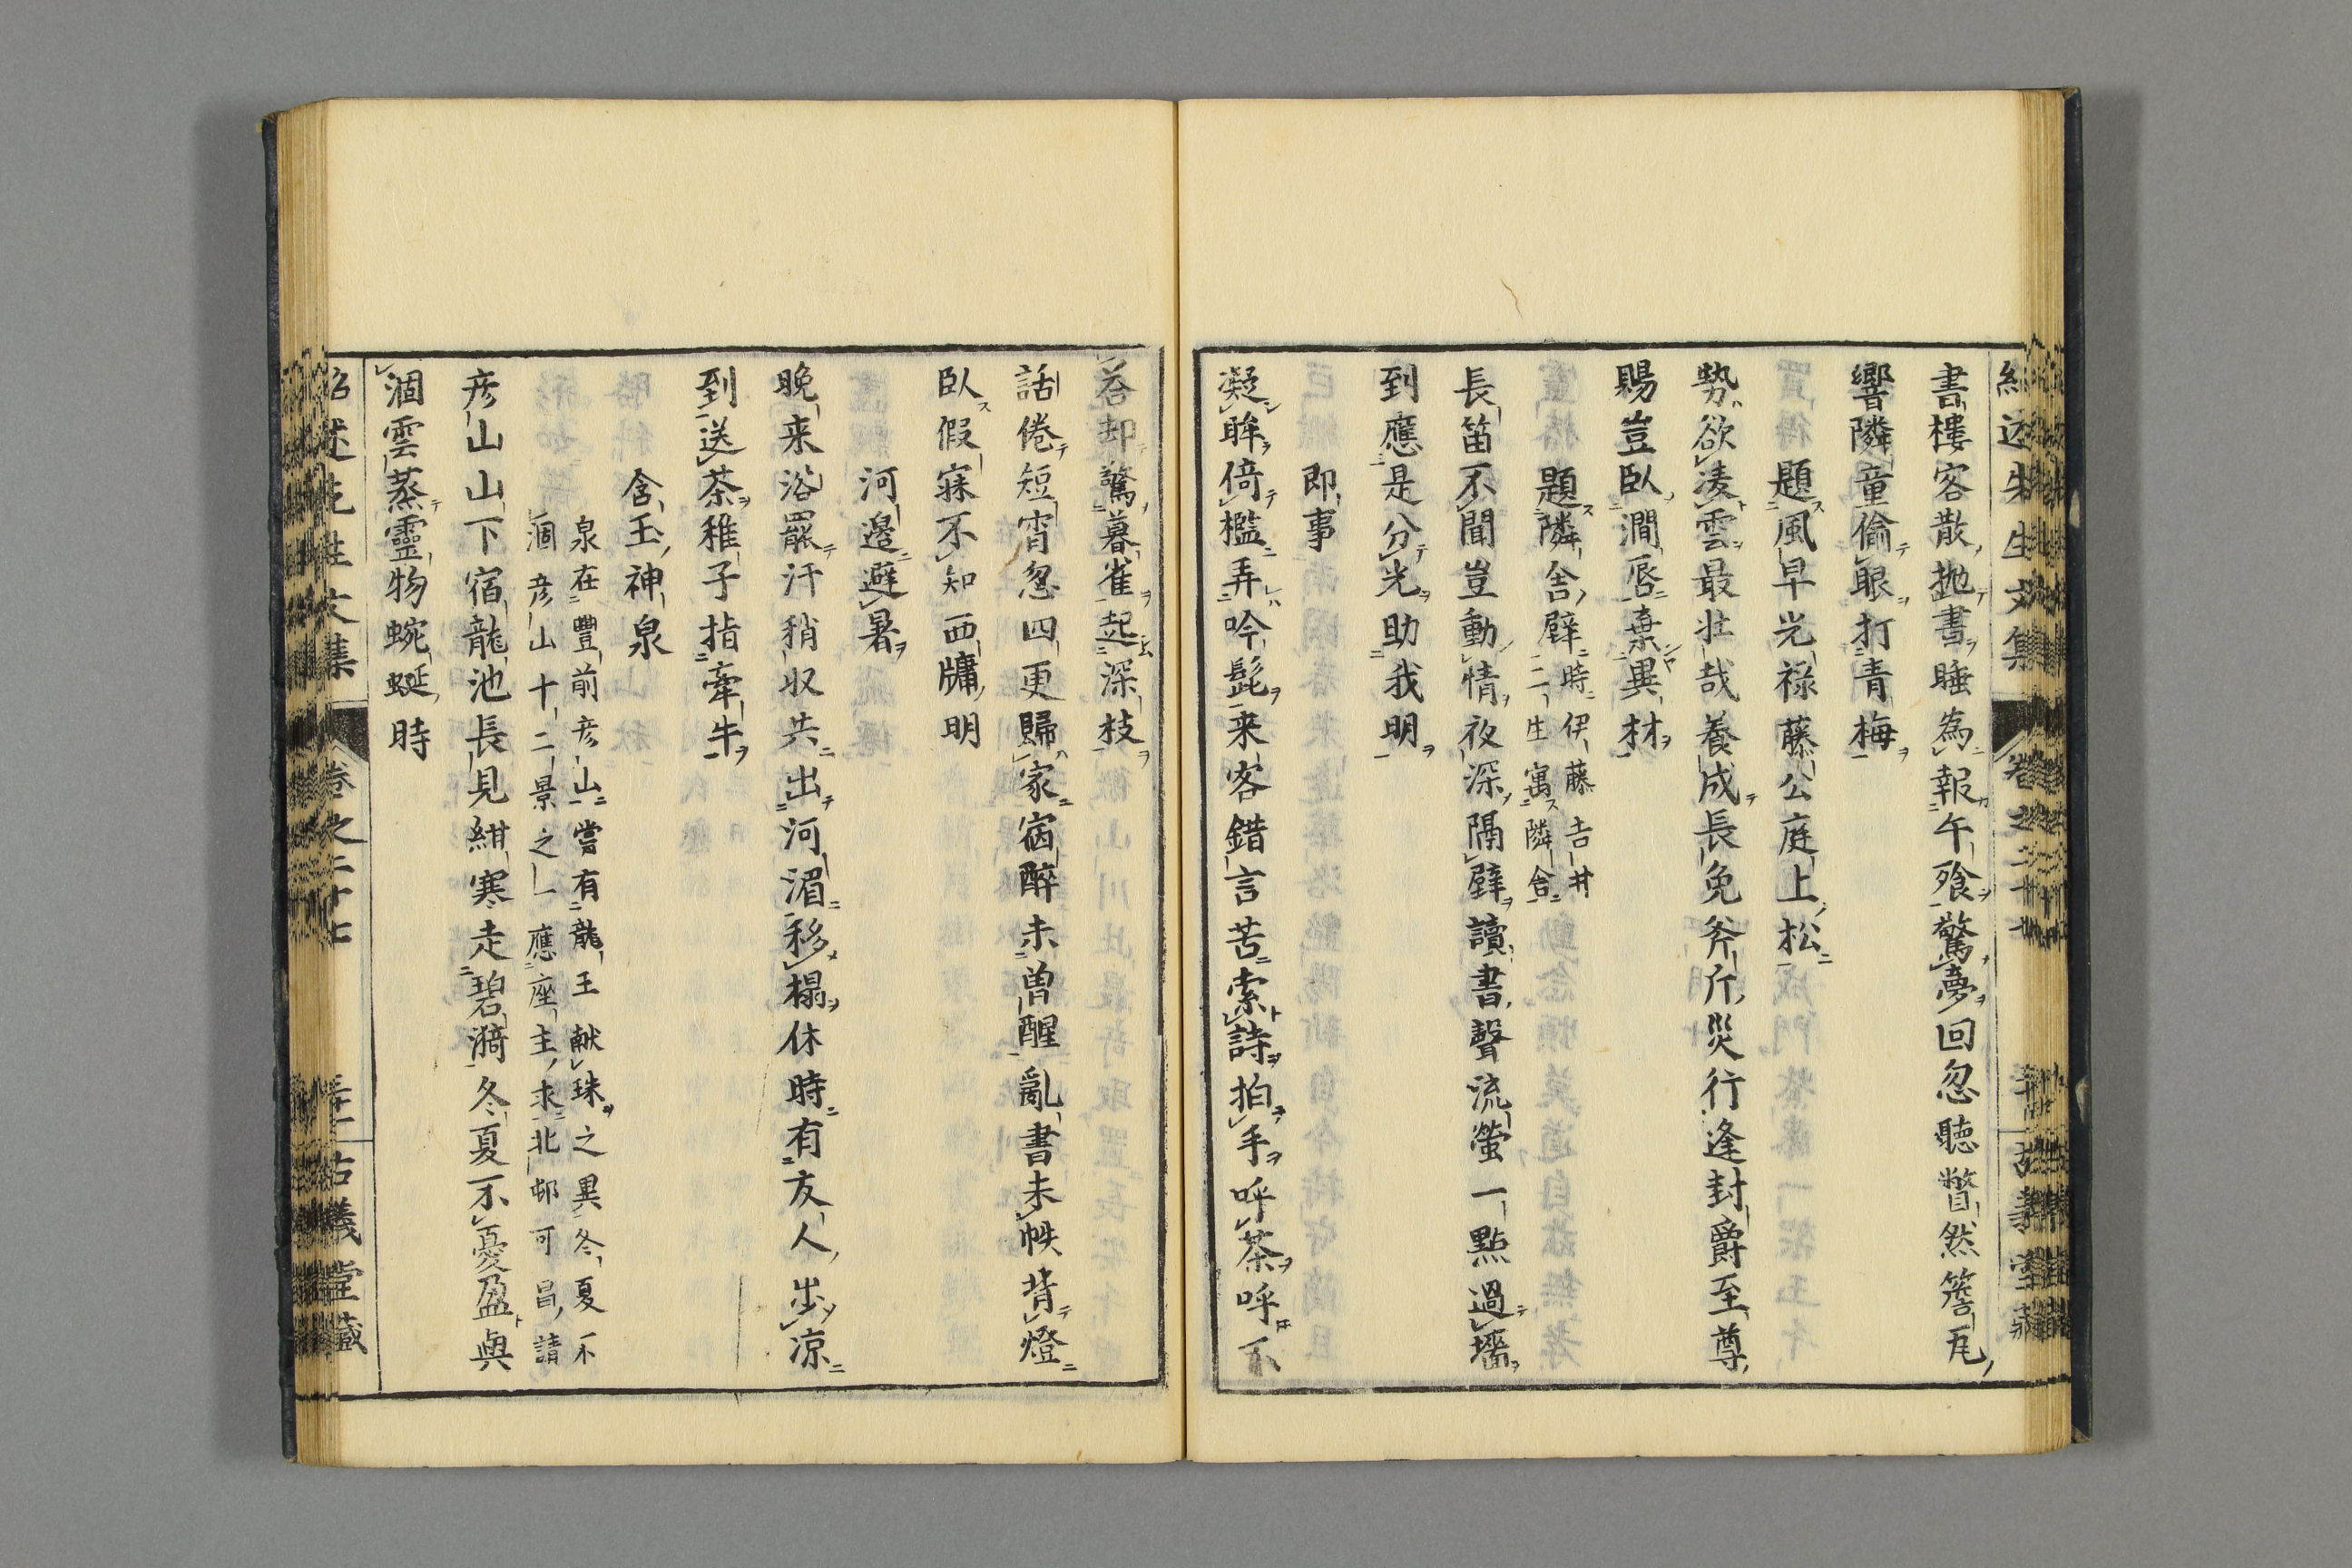 書樓客散抛書睡為報午飱驚夢回忽聴瞥然簷瓦
響隣童偷眼打青梅
題風早光禄藤公庭上松
勢欲凌雲最壮哉養成長免斧斤災行逢封爵至尊
賜豈臥澗阿棄異材
題隣舎壁時伊藤吉井
二生寓隣舎
長笛不聞豈動情夜深隔壁讀書聲流螢一點過墻
到應是分光助我明
即事
凝眸倚檻弄吟髭来客錯言苦索詩拍手呼茶呼不
荅却驚暮雀起深枝
話倦短宵忽四更歸家宿醉未曽醒亂書未帙背燈
臥假寐不知西牗明
河邊避暑
晩来浴罷汗稍収共出河湄移榻休時有友人出凉
到送茶稚子指牽牛
含玉神泉
泉在豐前彦山嘗有龍王献珠之異冬夏不
涸彦山十二景之一應座主求北邨可昌請
彦山山下宿龍池長見紺寒走碧漪冬夏不憂盈與
涸雲蒸靈物蜿蜒時
紹述先生文集 卷之二十七 古義堂藏